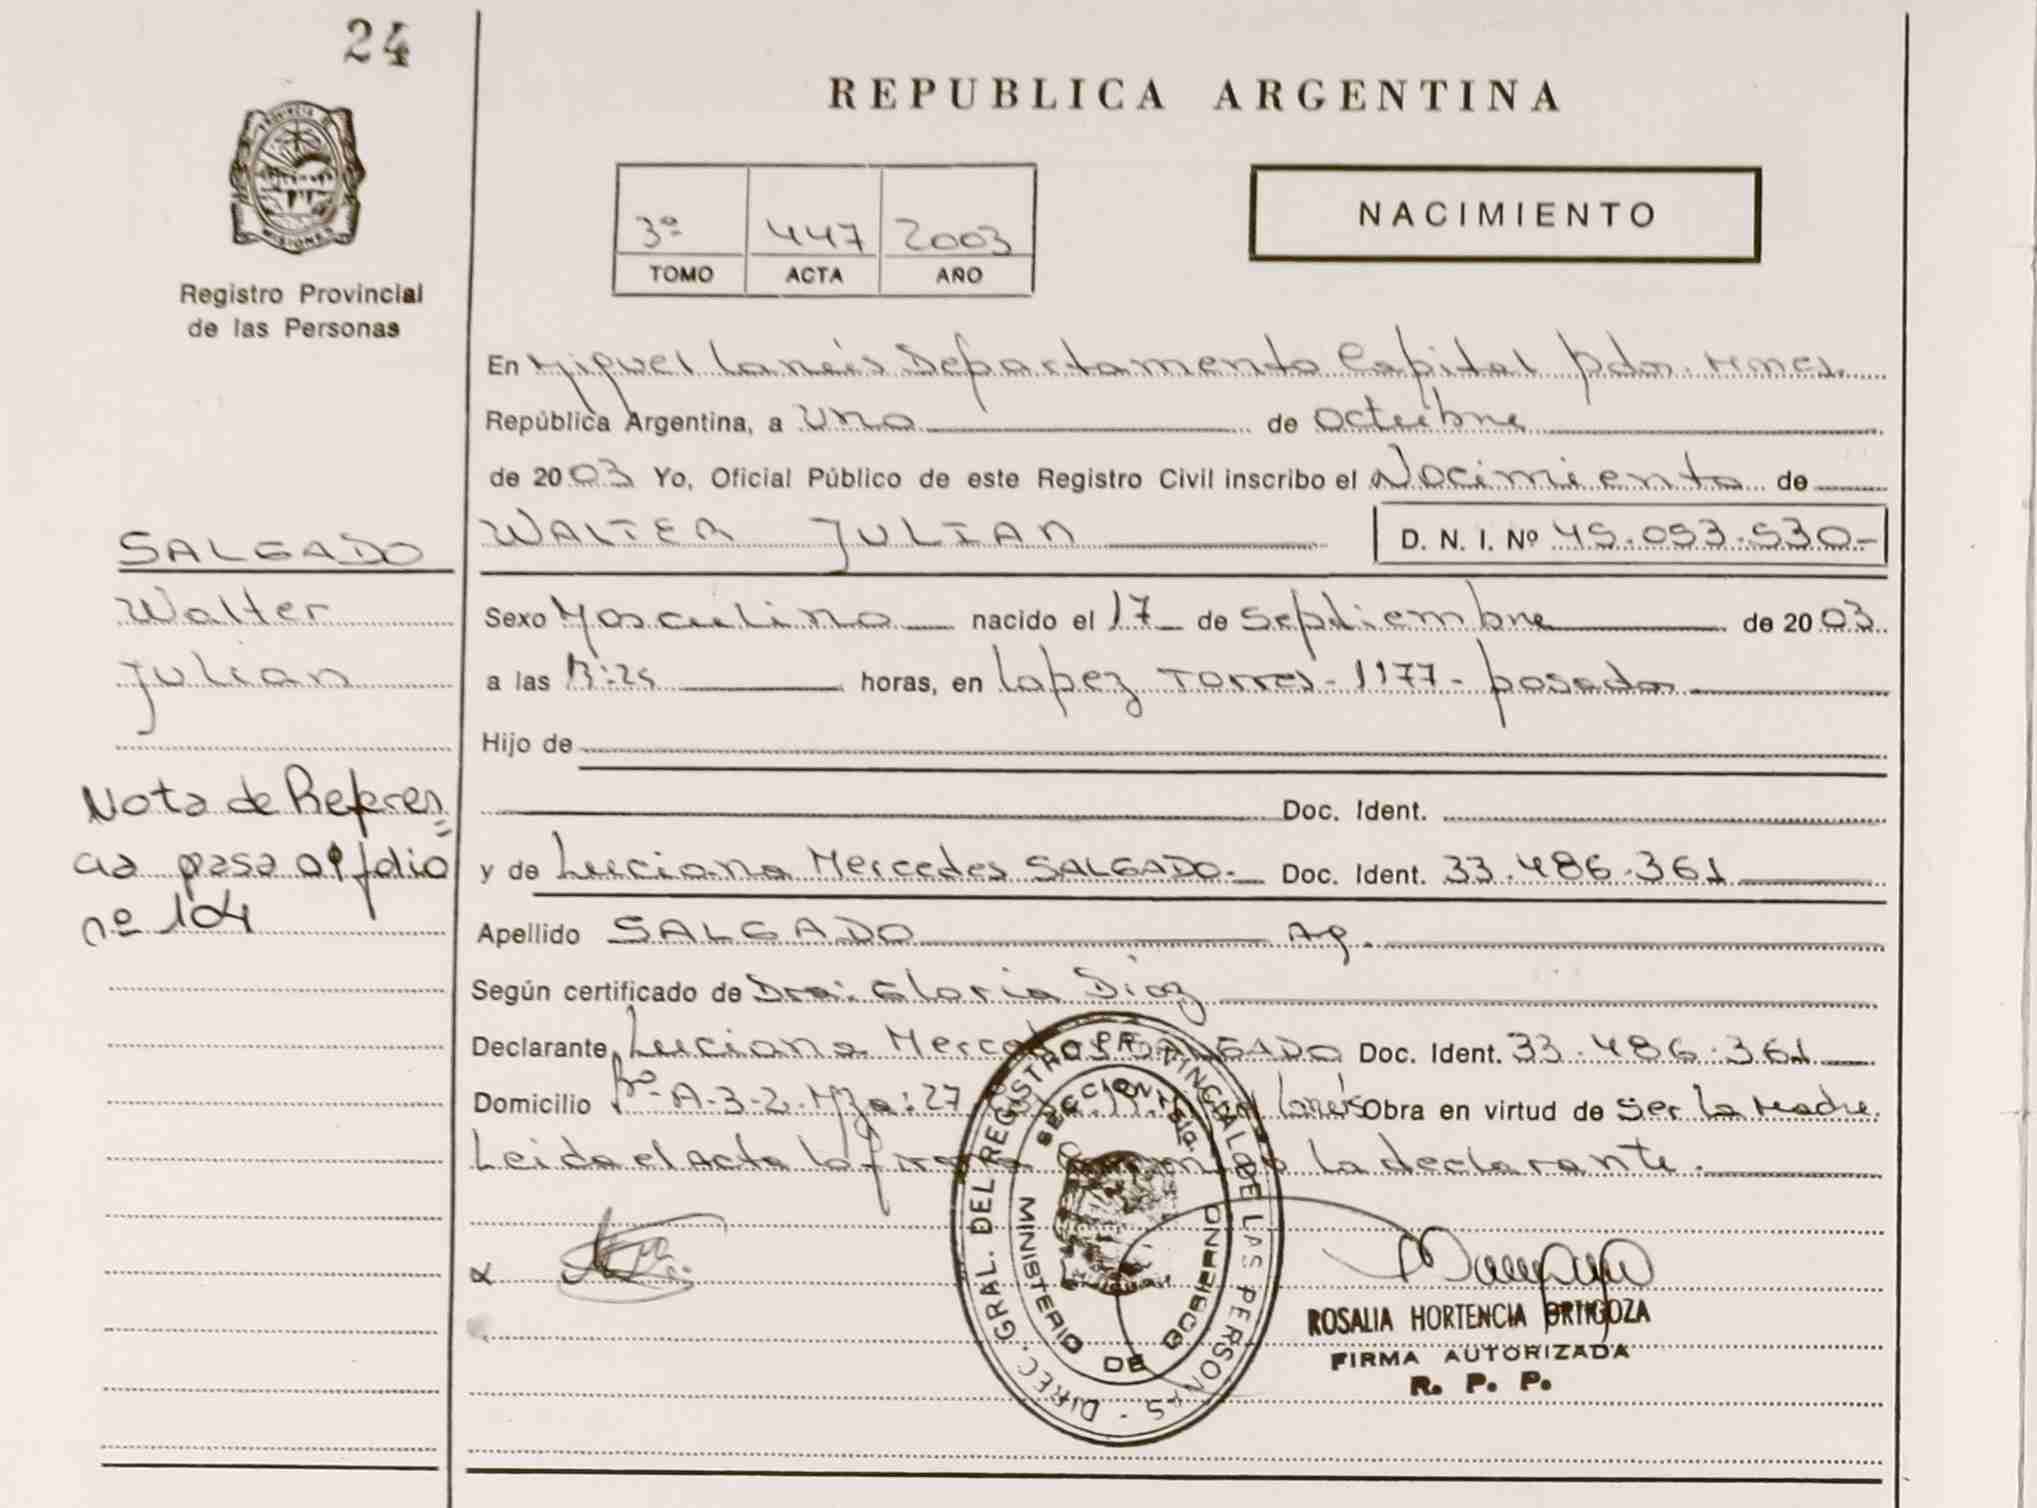 24
REPUBLICA ARGENTINA
PROVINCIA DE
MISIONES
Registro Provincial
de las Personas
3º 447 2003
TOMO ACTA AÑO
NACIMIENTO
En Miguel Lanéis Departamento Capital pdas. Mnes.
República Argentina, a uno de octubre
de 2003 Yo, Oficial Público de este Registro Civil inscribo el Nacimiento de
SALGADO
Walter
Julian
WALTER JULIAN D. N. I. Nº 45.053.530-
Sexo Masculino nacido el 17 de Septiembre de 2003
a las 13:25 horas, en Lopez Torres - 1177 - posadas
Hijo de
Doc. Ident.
Nota de Referen=
cia pasa al folio
nº 104
y de Luciana Mercedes SALGADO.- Doc. Ident. 33.486.361
Apellido SALGADO Ap.
Según certificado de Dra: Gloria Diaz
Declarante Luciana Mercedes SALGADO Doc. Ident. 33.486.361
Domicilio Bº A-3-2. Mza: 27 Lanéis Obra en virtud de ser la Madre.
Leida el acta la firma la declarante.
DIREC. GRAL. DEL REGISTRO PROVINCIAL DE LAS PERSONAS -
SECCION
MINISTERIO DE GOBIERNO
ROSALIA HORTENCIA ORTIGOZA
FIRMA AUTORIZADA
R. P. P.